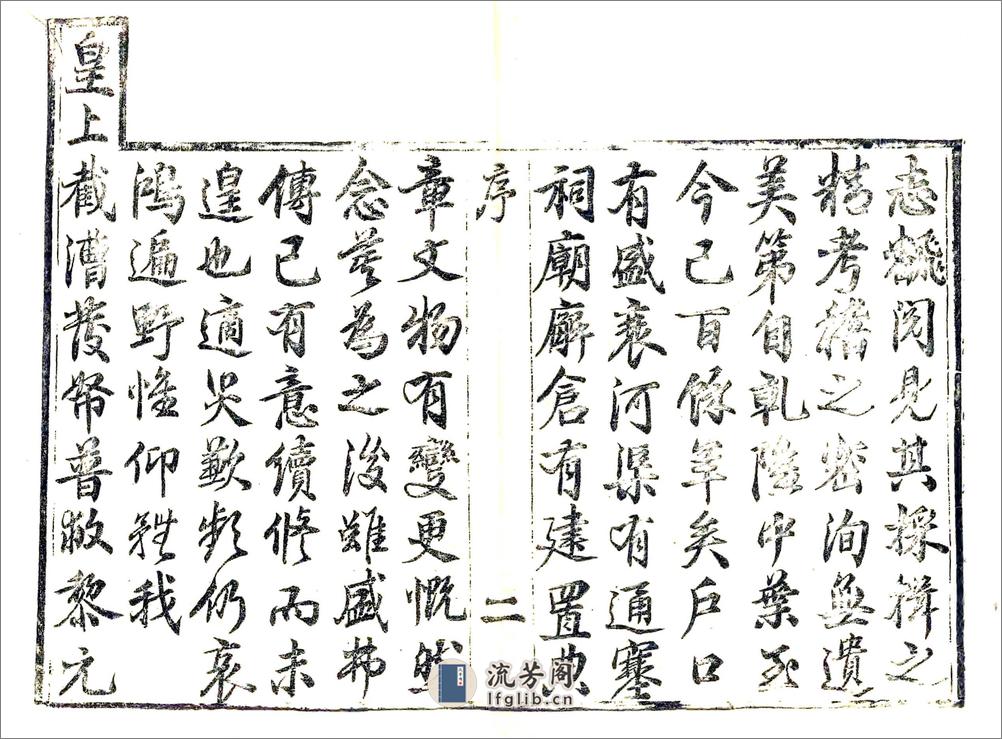 志翻閱見其採輯之
精考稽之密洵無遺
美第自乹隆中葉至
今已百餘年矣戶口
有盛衰河渠有通塞
祠廟廨倉有建置典
序
二
章文物有變更慨然
念莫為之後雖盛弗
傳已有意續修而未
遑也適災歉頻仍哀
鴻遍野惟仰賴我
皇上
截漕發帑普救黎元
流芳阁
lfglib.cn